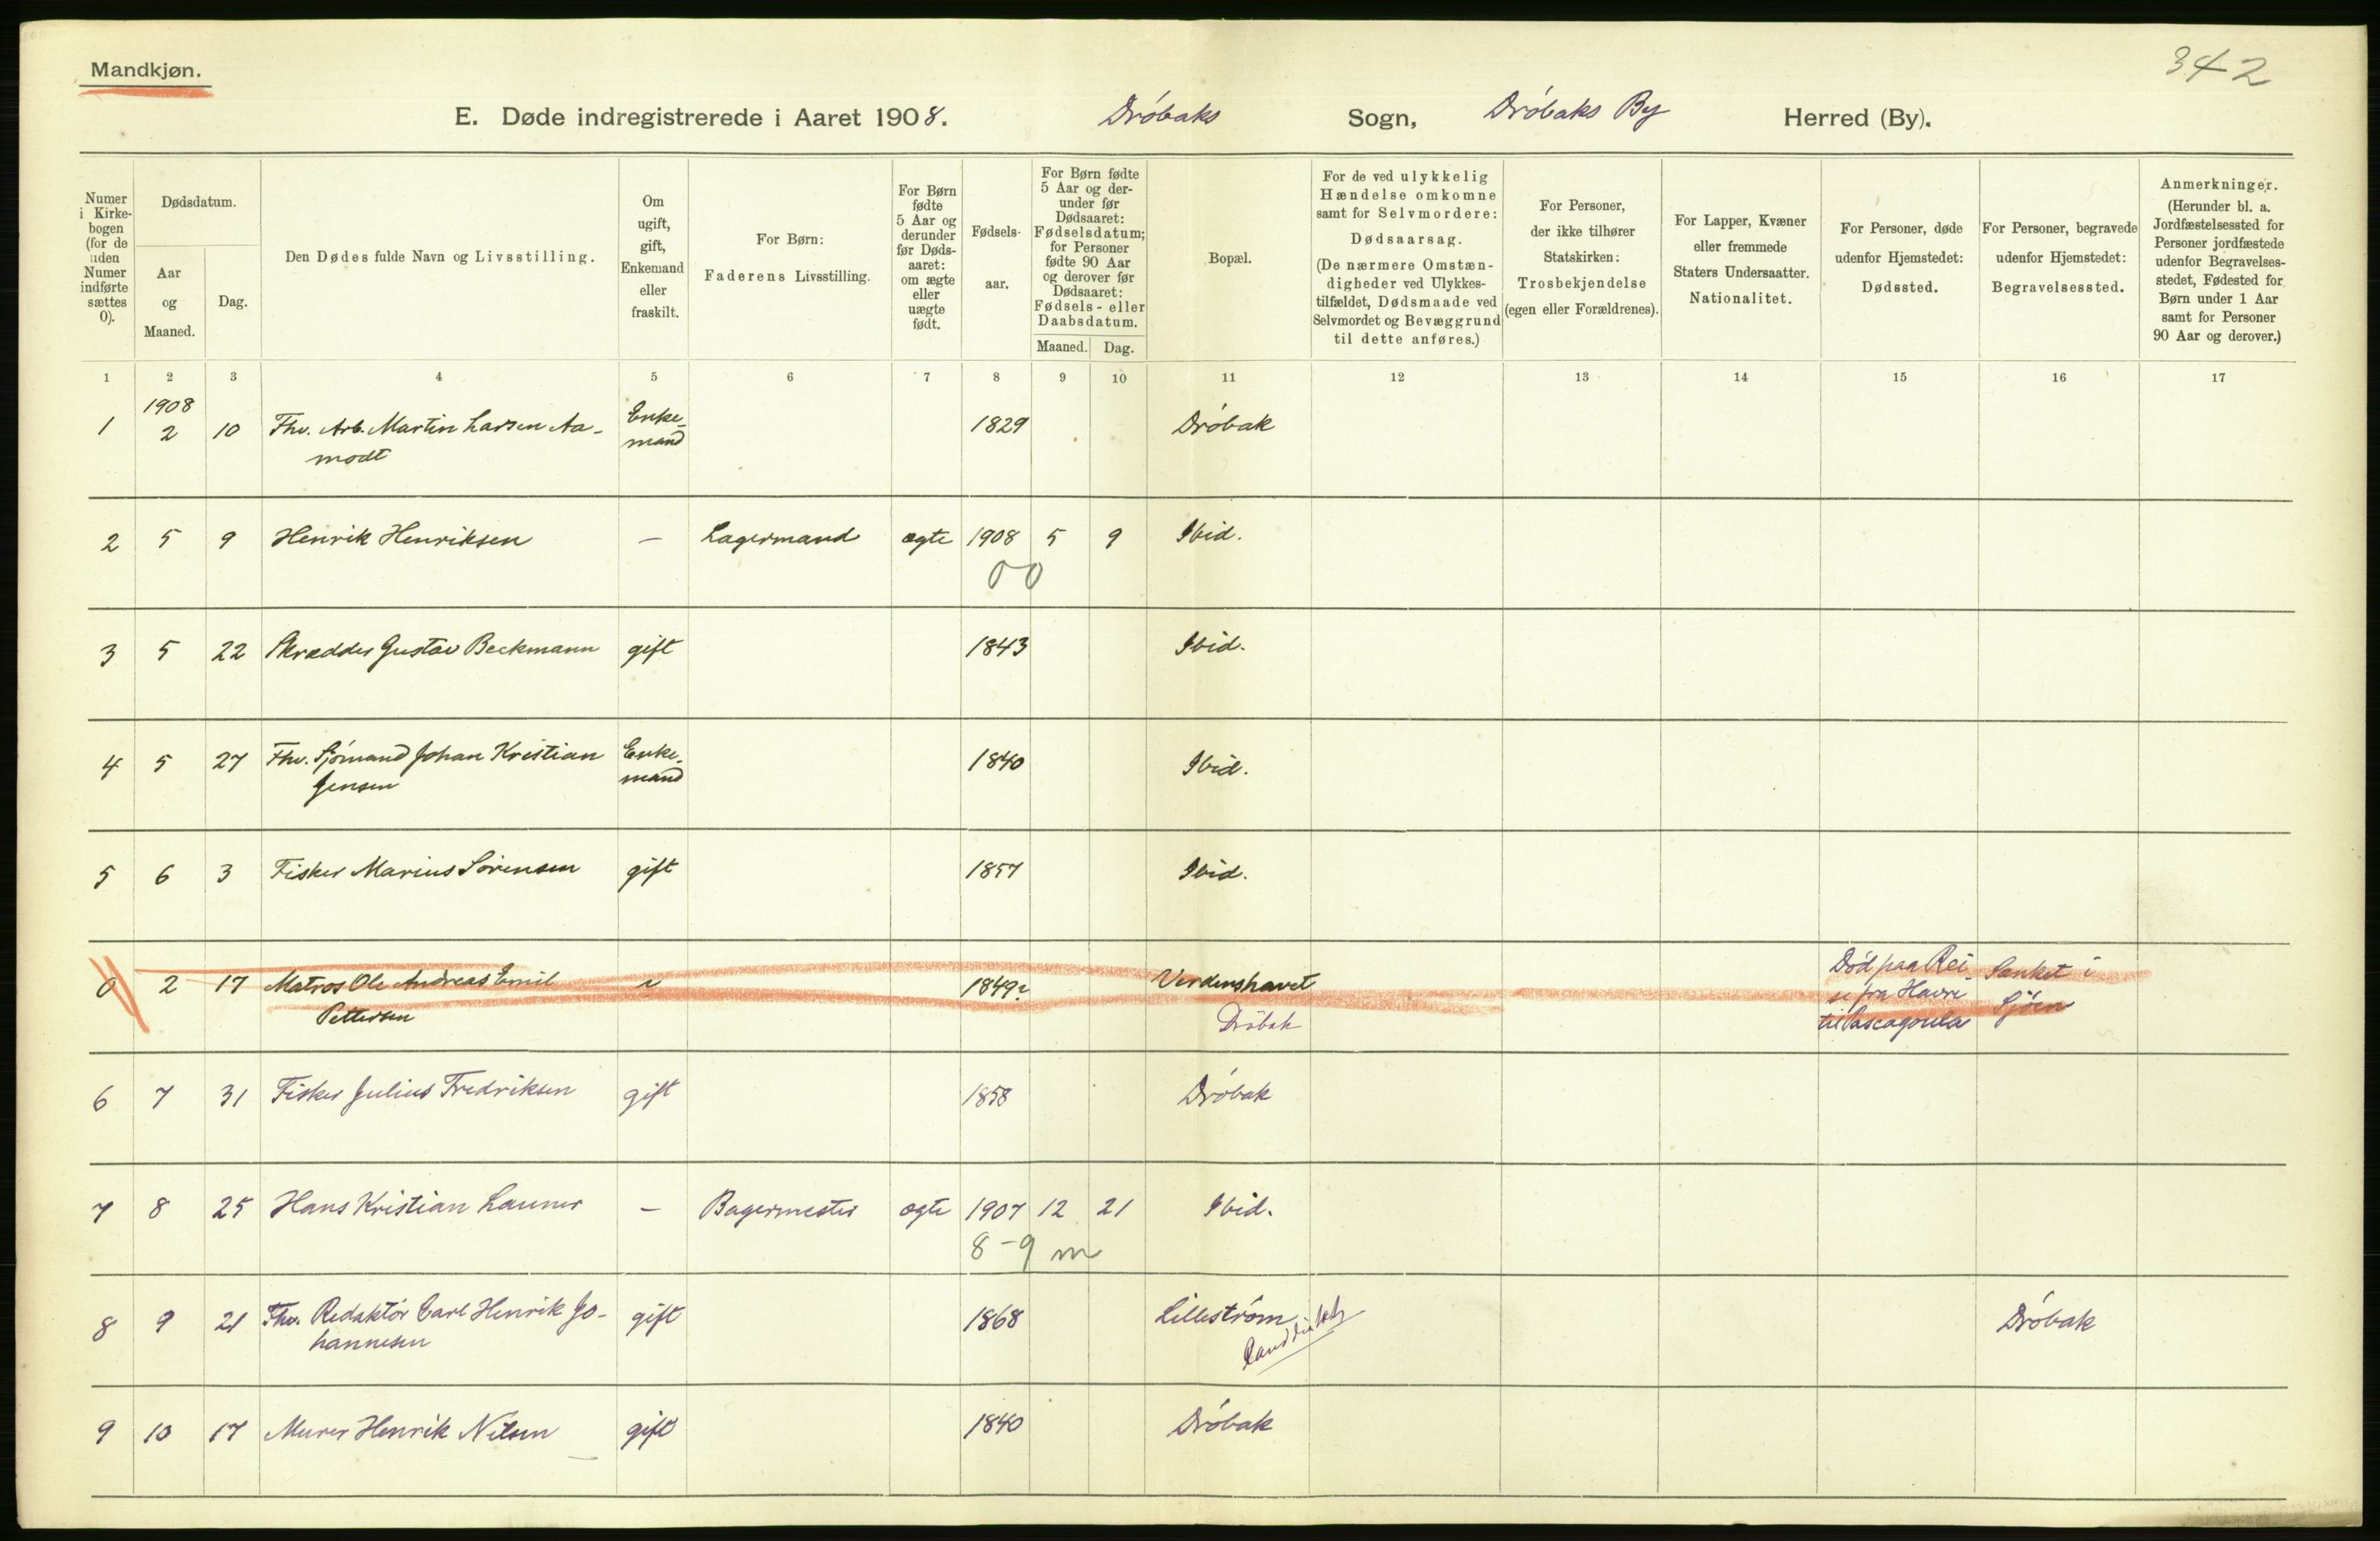 Mandkjøn.
342
E. Døde indregistrerede i Aaret 1908. Drøbaks Sogn, Drøbaks By Herred (By).
Numer i Kirke-bogen (for de uden Numer indførte sættes 0).
Dødsdatum.
Aar og Maaned.
Dag.
Den Dødes fulde Navn og Livsstilling.
Om ugift, gift, Enkemand eller fraskilt.
For Børn: Faderens Livsstilling.
For Børn fødte 5 Aar og derunder før Døds-aaret: om ægte eller uægte født.
Fødsels-aar.
For Børn fødte 5 Aar og der-under før Dødsaaret: Fødselsdatum; for Personer fødte 90 Aar og derover før Dødsaaret: Fødsels- eller Daabsdatum.
Maaned. Dag.
Bopæl.
For de ved ulykkelig Hændelse omkomne samt for Selvmordere: Dødsaarsag. (De nærmere Omstæn-digheder ved Ulykkes-tilfældet, Dødsmaade ved Selvmordet og Bevæggrund til dette anføres.)
For Personer, der ikke tilhører Statskirken: Trosbekjendelse (egen eller Forældrenes).
For Lapper, Kvæner eller fremmede Staters Undersaatter. Nationalitet.
For Personer, døde udenfor Hjemstedet: Dødssted.
For Personer, begravede udenfor Hjemstedet: Begravelsessted.
Anmerkninger. (Herunder bl. a. Jordfæstelsessted for Personer jordfæstede udenfor Begravelses-stedet, Fødested for Børn under 1 Aar samt for Personer 90 Aar og derover.)
1 2 3 4 5 6 7 8 9 10 11 12 13 14 15 16 17
1908
1 2 10 Fhv. Arb. Martin Larsen Aa- Enke- 1829 Drøbak
modt mand
2 5 9 Henrik Henriksen — Lagermand ægte 1908 5 9 Ibid.
00
3 5 22 Skrædder Gustav Beckmann gift 1843 Ibid.
4 5 27 Fhv. Sjømand Johan Kristian Enke- 1840 Ibid.
Jensen mand
5 6 3 Fisker Marius Sørensen gift 1857 Ibid.
0 2 17 Matros Ole Andreas Emil 1849? Verdenshavet Død paa Rei- Sænket i
Pettersen Drøbak se fra Havre Sjøen
til Pascagoula
6 7 31 Fisker Julius Fredriksen gift 1858 Drøbak
7 8 25 Hans Kristian Launer — Bagermester ægte 1907 12 21 Ibid.
8-9 m
8 9 21 Fhv. Redaktør Carl Henrik Jo- gift 1868 Lillestrøm Drøbak
hannesen
9 10 17 Murer Henrik Nilsen gift 1840 Drøbak